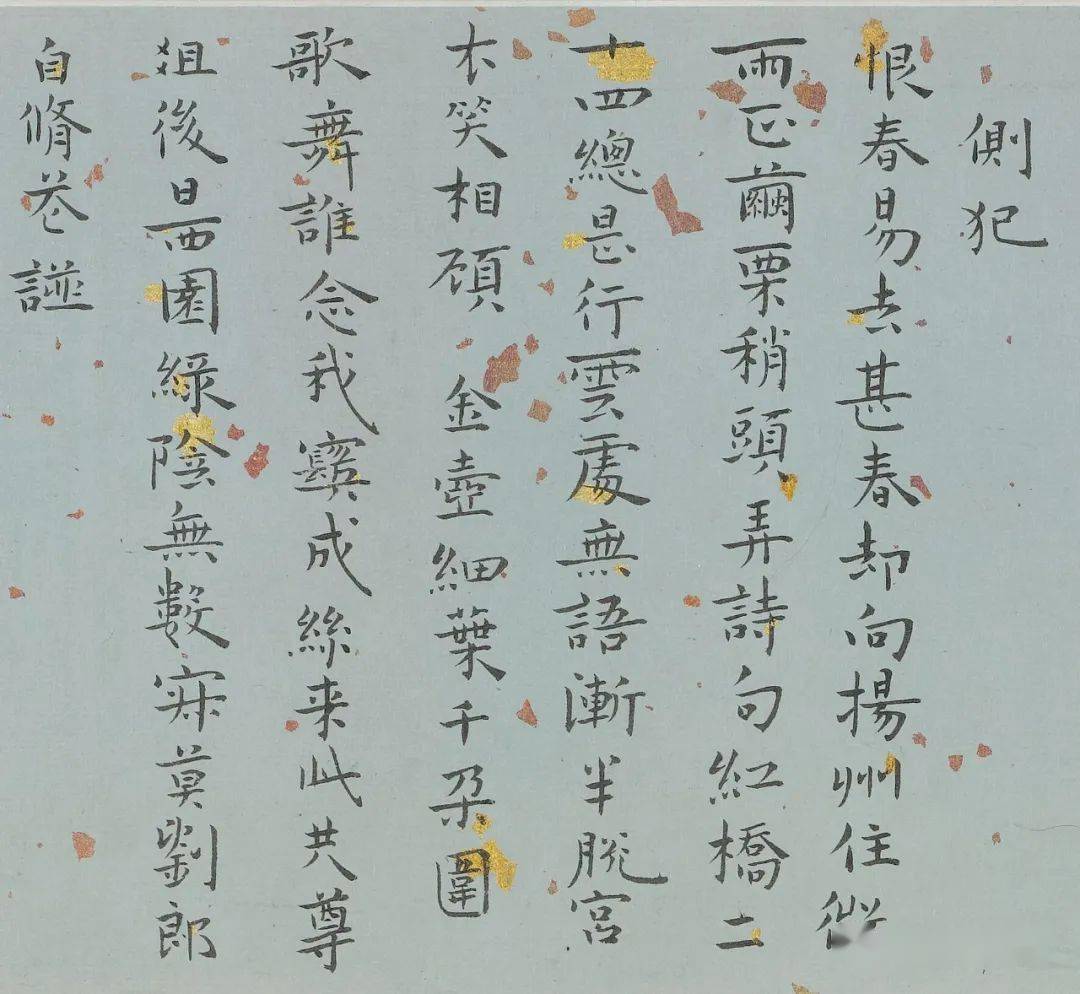 側犯
恨春易去甚春却向揚州住微
雨正繭栗稍頭弄詩句紅橋二
十四總是行雲處無語漸半脫宮
衣笑相顧 金壺細葉千朵圍
歌舞誰念我鬢成絲来此共尊
俎後日西園綠陰無數寂莫劉郎
自脩花譜